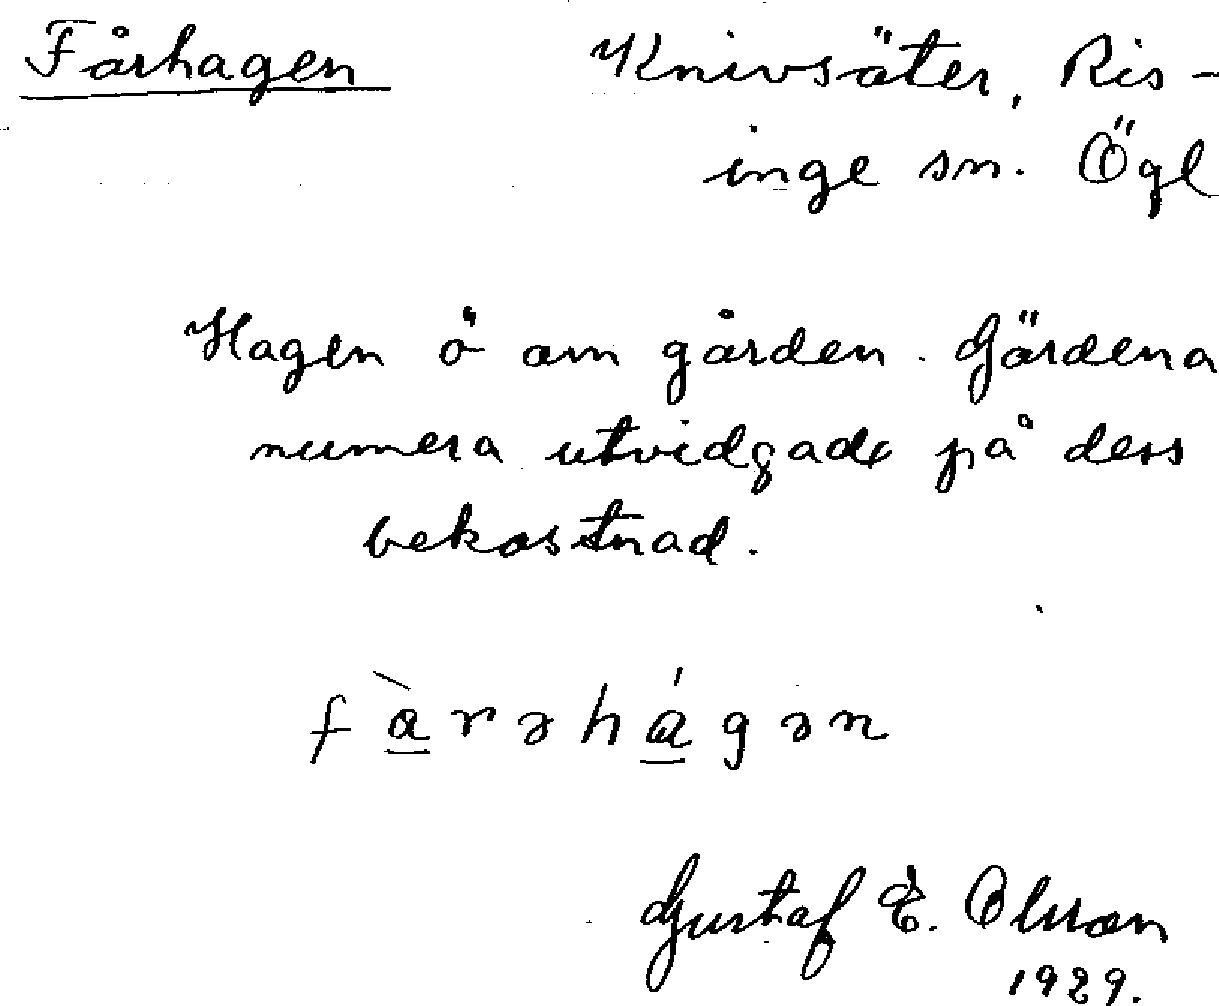 Fårhagen Knivsäter, Ris-
inge sn. Ögl
Hagen ö om gården. Gärdena
numera utvidgade på dess
bekostnad.
fàrəhágən
Gustaf E. Olsson
1929.